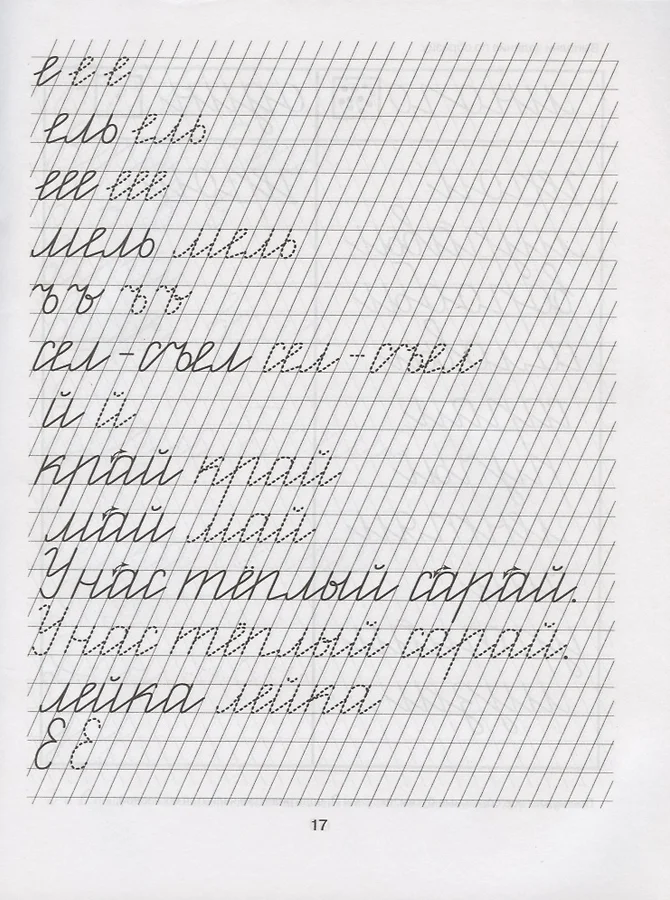 е е е
ель ель
еее еее
мель мель
ъ ъ ъ ъ
сел - съел сел - съел
й й
край край
май май
У нас тёплый сарай.
У нас тёплый сарай.
лейка лейка
Е Е
17